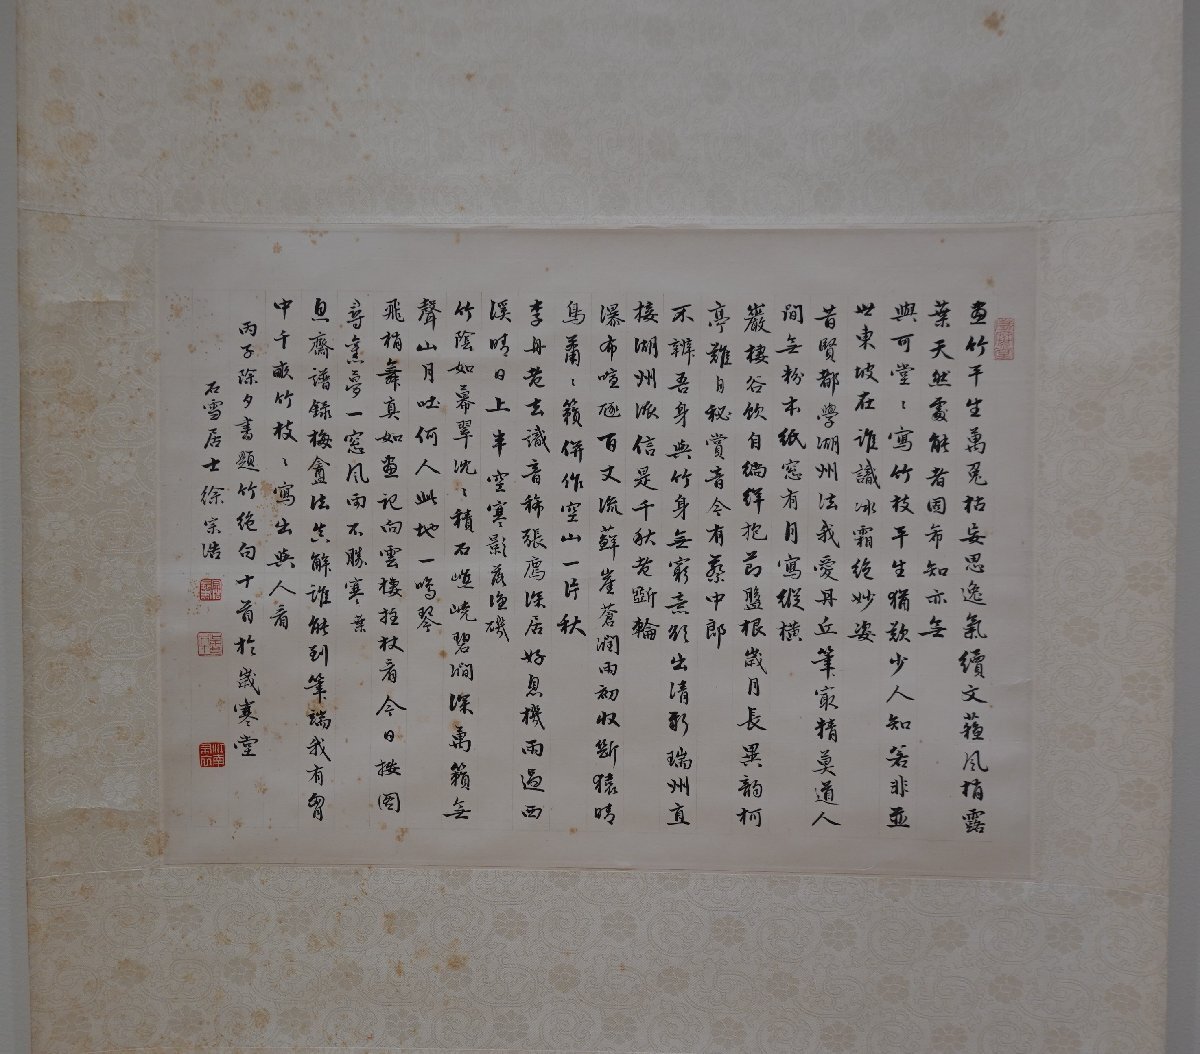 畫竹平生萬兔枯妄思逸氣續文蘓風梢露
葉天然處能者固希知亦無
與可堂〻寫竹枝平生猶歎少人知若非並
世東坡在誰識冰霜絕妙姿
昔賢都學湖州法我愛丹丘筆最精莫道人
間無粉本紙窓有月寫縱橫
巖棲谷飲自綢繆抱節盤根歲月長異韻柯
亭難自秘賞音今有蔡中郎
不辨吾身與竹身無窮意態出清新瑞州直
接湖州派信是千秋老斲輪
瀑布喧豗百丈流蘚崖蒼潤雨初收斷猿晴
鳥蕭〻籟併作空山一片秋
李丹老去識音稀張廌深居好息機雨過西
溪晴日上半空寒影落漁磯
竹陰如幕翠沈〻積石嶙峋碧澗深萬籟無
聲山月吐何人此地一鳴琴
飛梢舞真如畫記向雲棲拄杖看今日按圖
尋舊夢一窓風雨不勝寒 葉
息齋譜錄梅盦法生解誰能到筆端我有胷
中千畝竹枝〻寫出與人看
丙子除夕書題竹絕句十首於歲寒堂
石雪居士徐宗浩